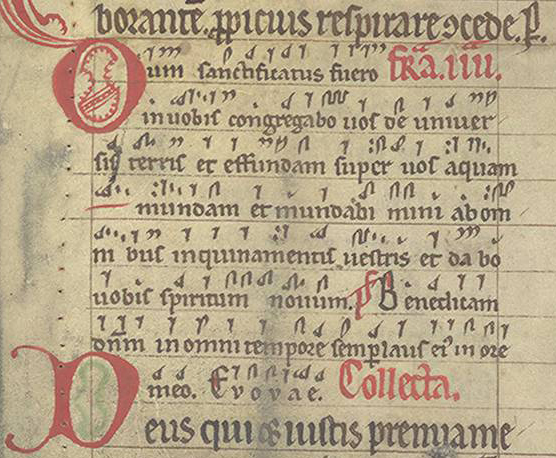 borantē. ꝓpicius respirare ↄcede. P.
Dum sanctificatus fuero fr̄a. iiii.
in uobis congregabo uos de univer
sis terris et effundam super uos aquam
mundam et mundabi mini ab om
ni bus inquinamentis uestris et da bo
uobis spiritum nouum. ps Benedicam
dn̄m in omni tempore semp laus ei' in ore
meo. Evovae. Collecta.
Deus qui et iustis premia me